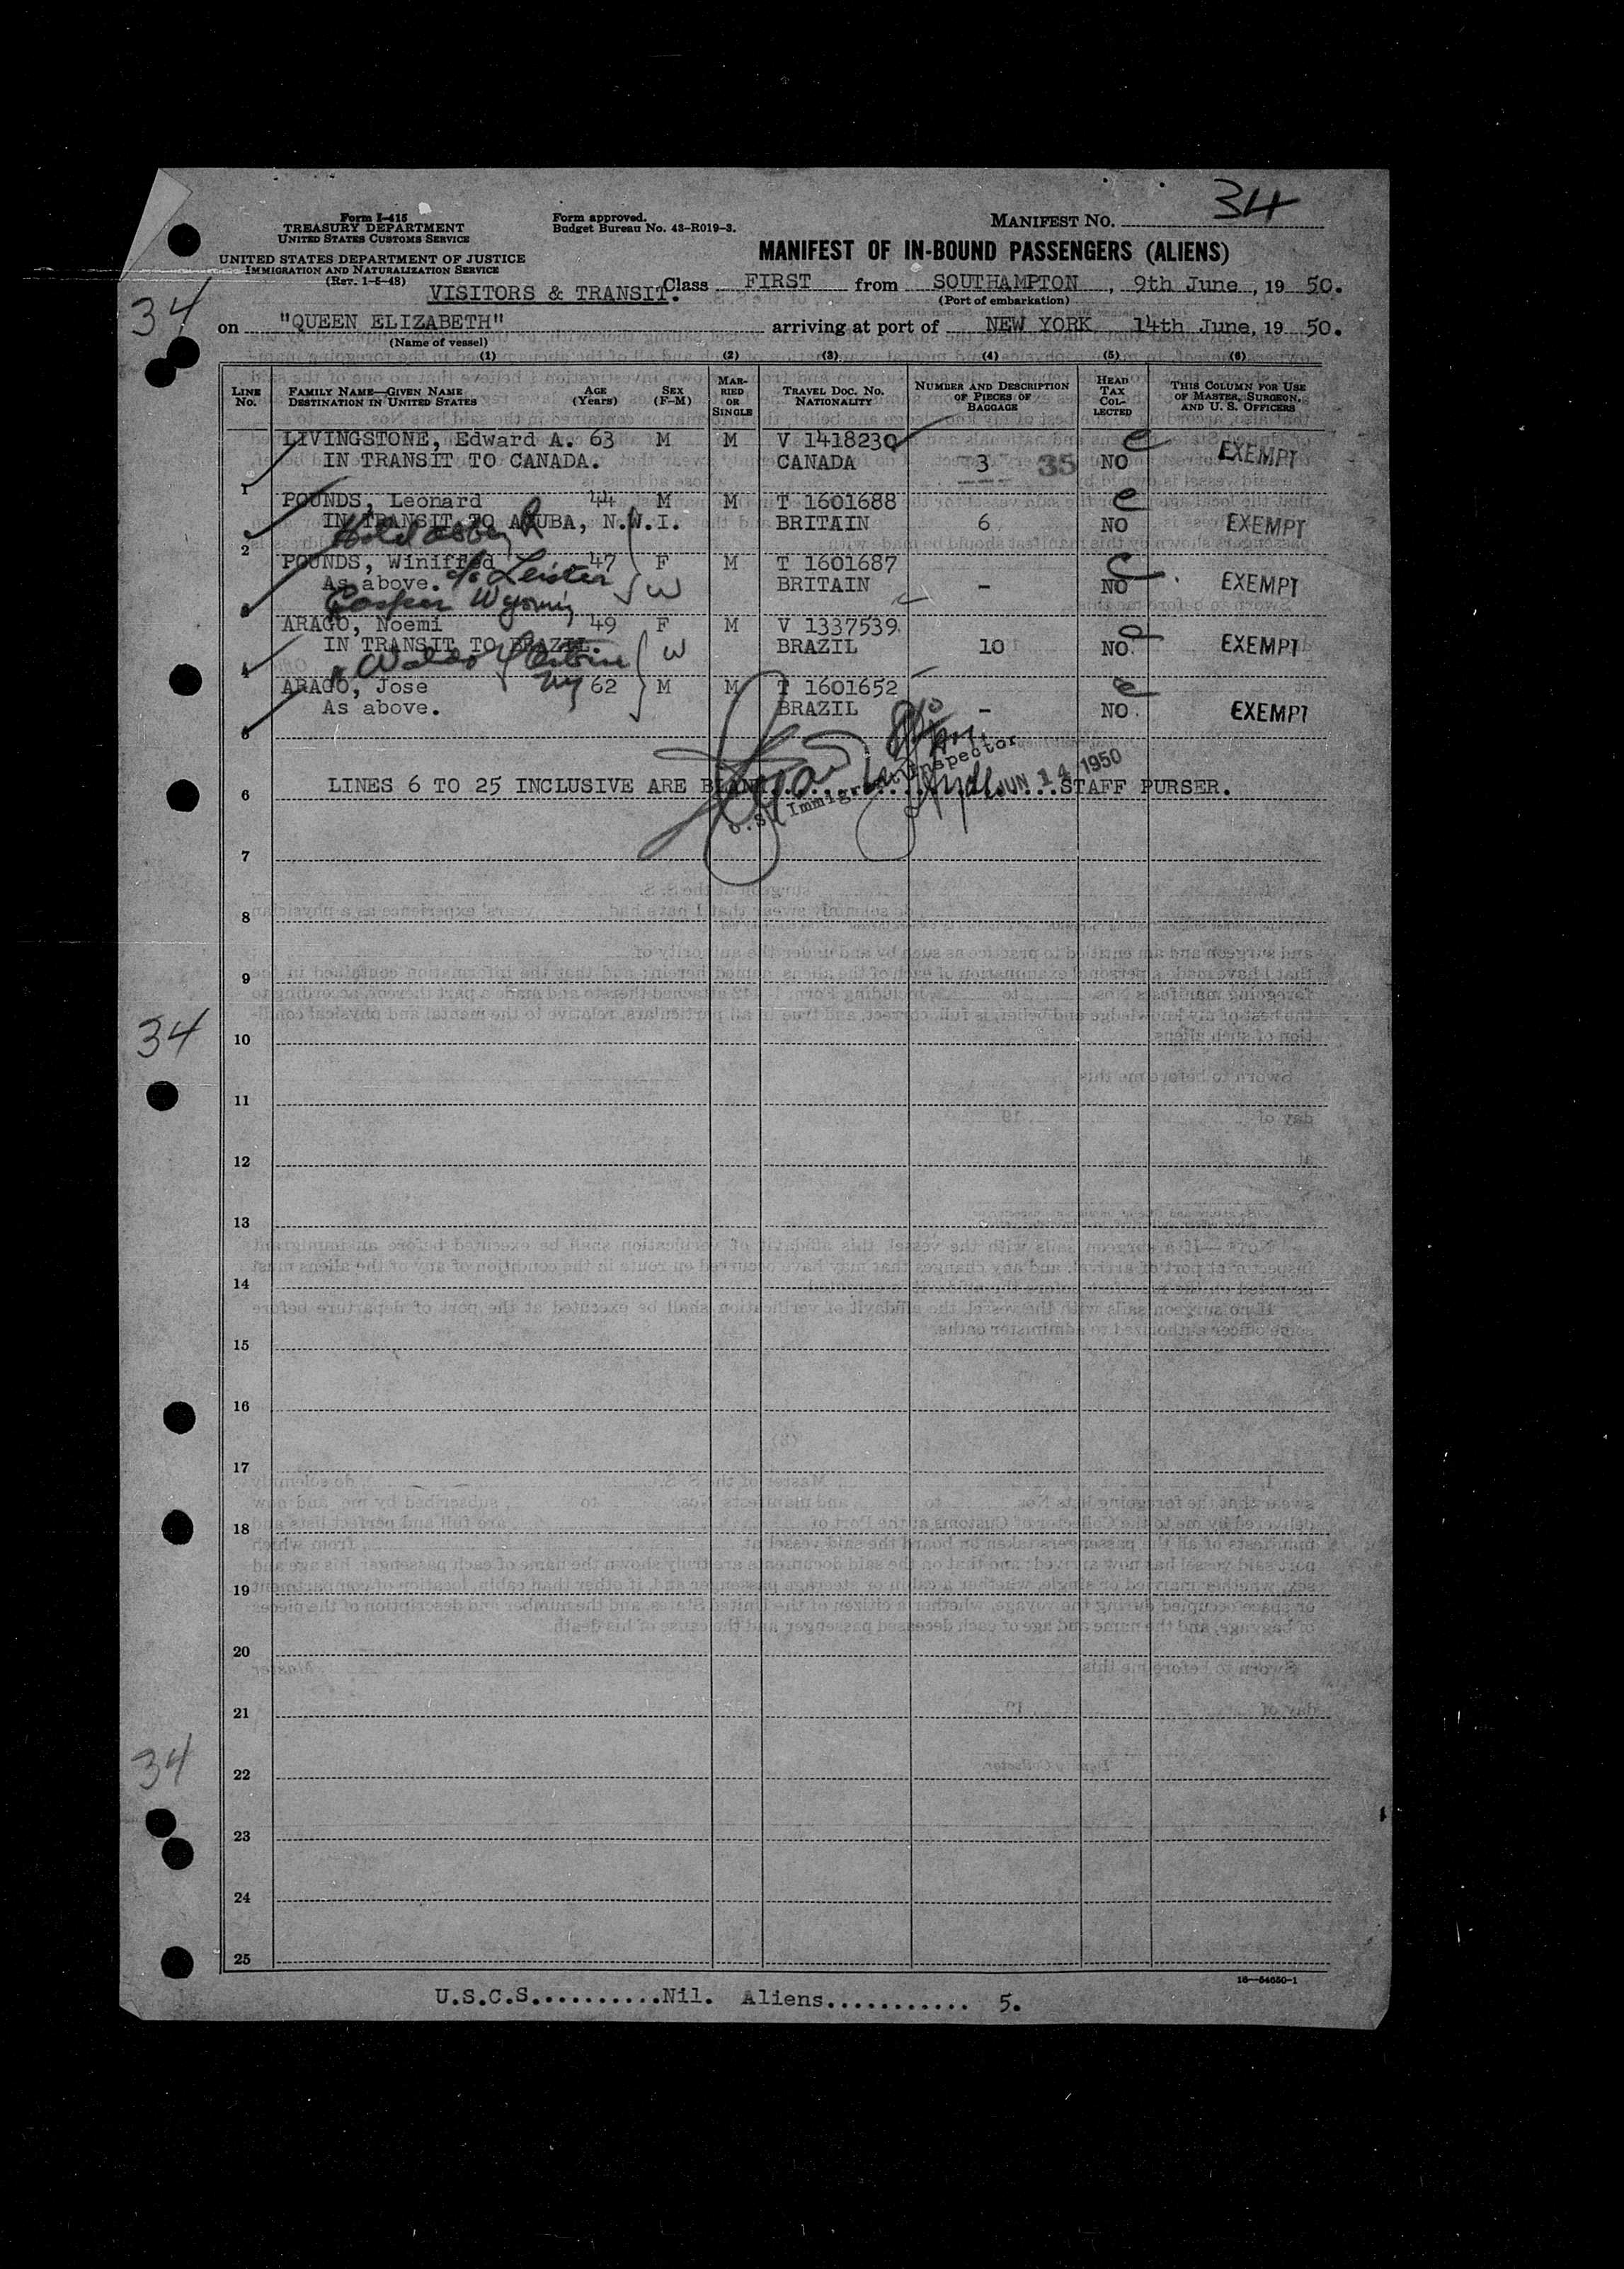 34
Form I-415
TREASURY DEPARTMENT
UNITED STATES CUSTOMS SERVICE
UNITED STATES DEPARTMENT OF JUSTICE
IMMIGRATION AND NATURALIZATION SERVICE
(Rev. 1-5-48)
Form approved.
Budget Bureau No. 43-R019-3.
MANIFEST NO.
MANIFEST OF IN-BOUND PASSENGERS (ALIENS)
VISITORS & TRANSIT. Class FIRST from SOUTHAMPTON, 9th June, 19 50.
(Port of embarkation)
34
on "QUEEN ELIZABETH" arriving at port of NEW YORK 14th June, 19 50.
(Name of vessel)
(1) (2) (3) (4) (5) (6)
LINE No. FAMILY NAME—GIVEN NAME DESTINATION IN UNITED STATES AGE (Years) SEX (F-M) MARRIED OR SINGLE TRAVEL DOC. NO. NATIONALITY NUMBER AND DESCRIPTION OF PIECES OF BAGGAGE HEAD TAX COLLECTED THIS COLUMN FOR USE OF MASTER, SURGEON, AND U. S. OFFICERS
LIVINGSTONE, Edward A. 63 M M V 1418230 EXEMPT
1 IN TRANSIT TO CANADA. CANADA 3 35 NO
POUNDS, Leonard 44 M M T 1601688
2 IN TRANSIT TO ARUBA, N.W.I. BRITAIN 6 NO EXEMPT
POUNDS, Winifred 47 F M T 1601687
3 As above. c/o Leister W BRITAIN - NO EXEMPT
Casper Wyoming
ARAGO, Noemi 49 F M V 1337539
4 IN TRANSIT TO BRAZIL. W BRAZIL 10 NO EXEMPT
Waldorf Astoria
NY
ARAGO, Jose 62 M M T 1601652
5 As above. BRAZIL - NO EXEMPT
U.S. Immigrant Inspector
JUN 14 1950
6 LINES 6 TO 25 INCLUSIVE ARE BLANK STAFF PURSER.
7
8
9
34
10
11
12
13
14
15
16
17
18
19
20
21
34
22
23
24
25
16—54650-1
U.S.C.S..........Nil. Aliens........... 5.